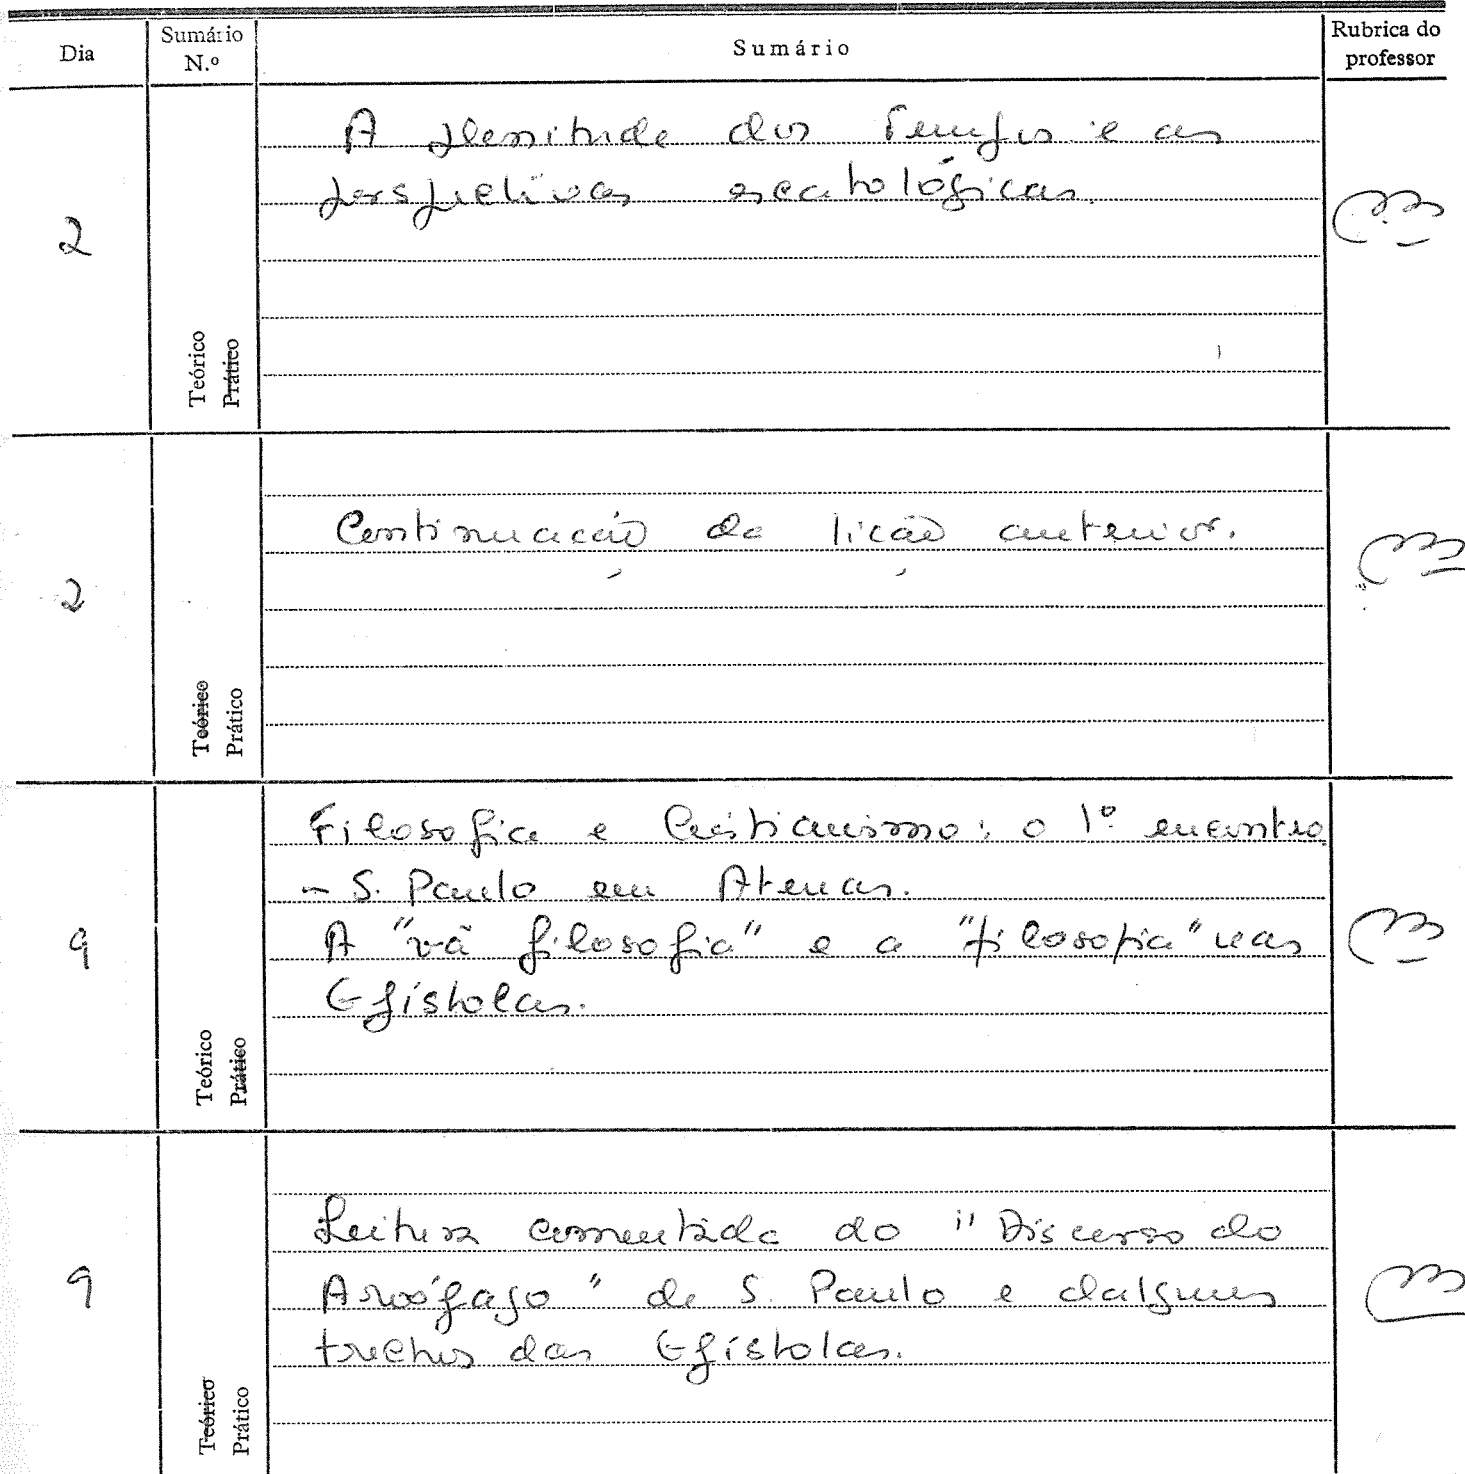 Dia
Sumário
N.º
Sumário
Rubrica do
professor
2
A plenitude dos Tempos e as
perspectivas escatológicas.
Teórico
Prático
2
Continuação da lição anterior.
Teórico
Prático
9
Filosofia e Cristianismo: o 1º encontro
- S. Paulo em Atenas.
A "vã filosofia" e a "filosofia" nas
Epístolas.
Teórico
Prático
9
Leitura comentada do "Discurso do
Areópago" de S. Paulo e dalguns
trechos das Epístolas.
Teórico
Prático